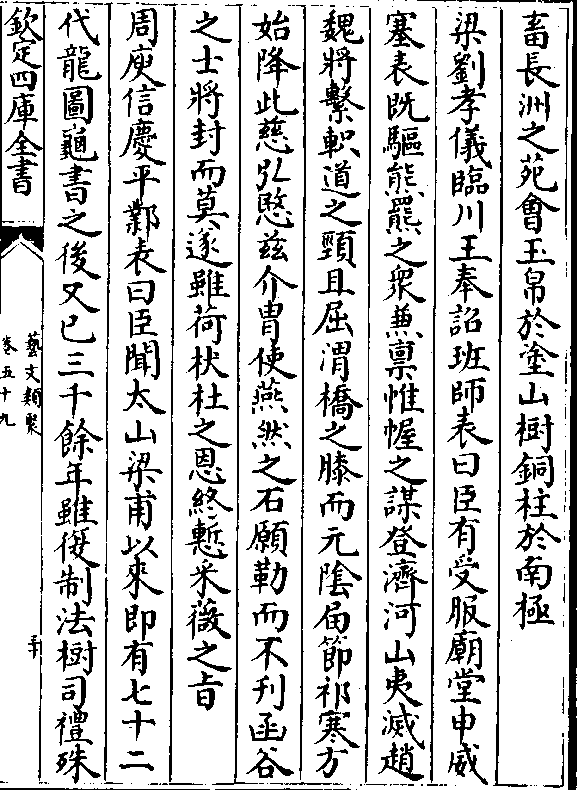 畜長洲之苑會玉帛於塗山樹銅柱於南極
梁劉孝儀臨川王奉詔班師表曰臣有受服廟堂申威
塞表既驅熊羆之衆兼禀惟幄之謀登濟河山夷滅趙
魏將繫軹道之頸且屈渭橋之膝而元陰届節祁寒方
始降此慈弘愍兹介胄使燕然之石願勒而不刋函谷
之士將封而莫遂雖荷杕杜之恩終慙采薇之㫖
周庾信慶平鄴表曰臣聞太山梁甫以來即有七十二
代龍圖龜書之後又已三千餘年雖復制法樹司禮殊
欽定四庫全書
藝文類聚
卷五十九
三十